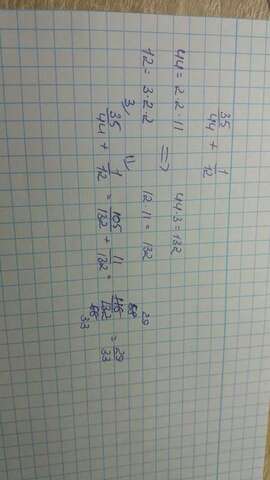 35/44 + 1/12
44 = 2·2·11 => 44·3 = 132
12 = 3·2·2 12·11 = 132
3/ 35/44 + 11/ 1/12 = 105/132 + 11/132 = 116/132 = 29/33
58 29
66 33